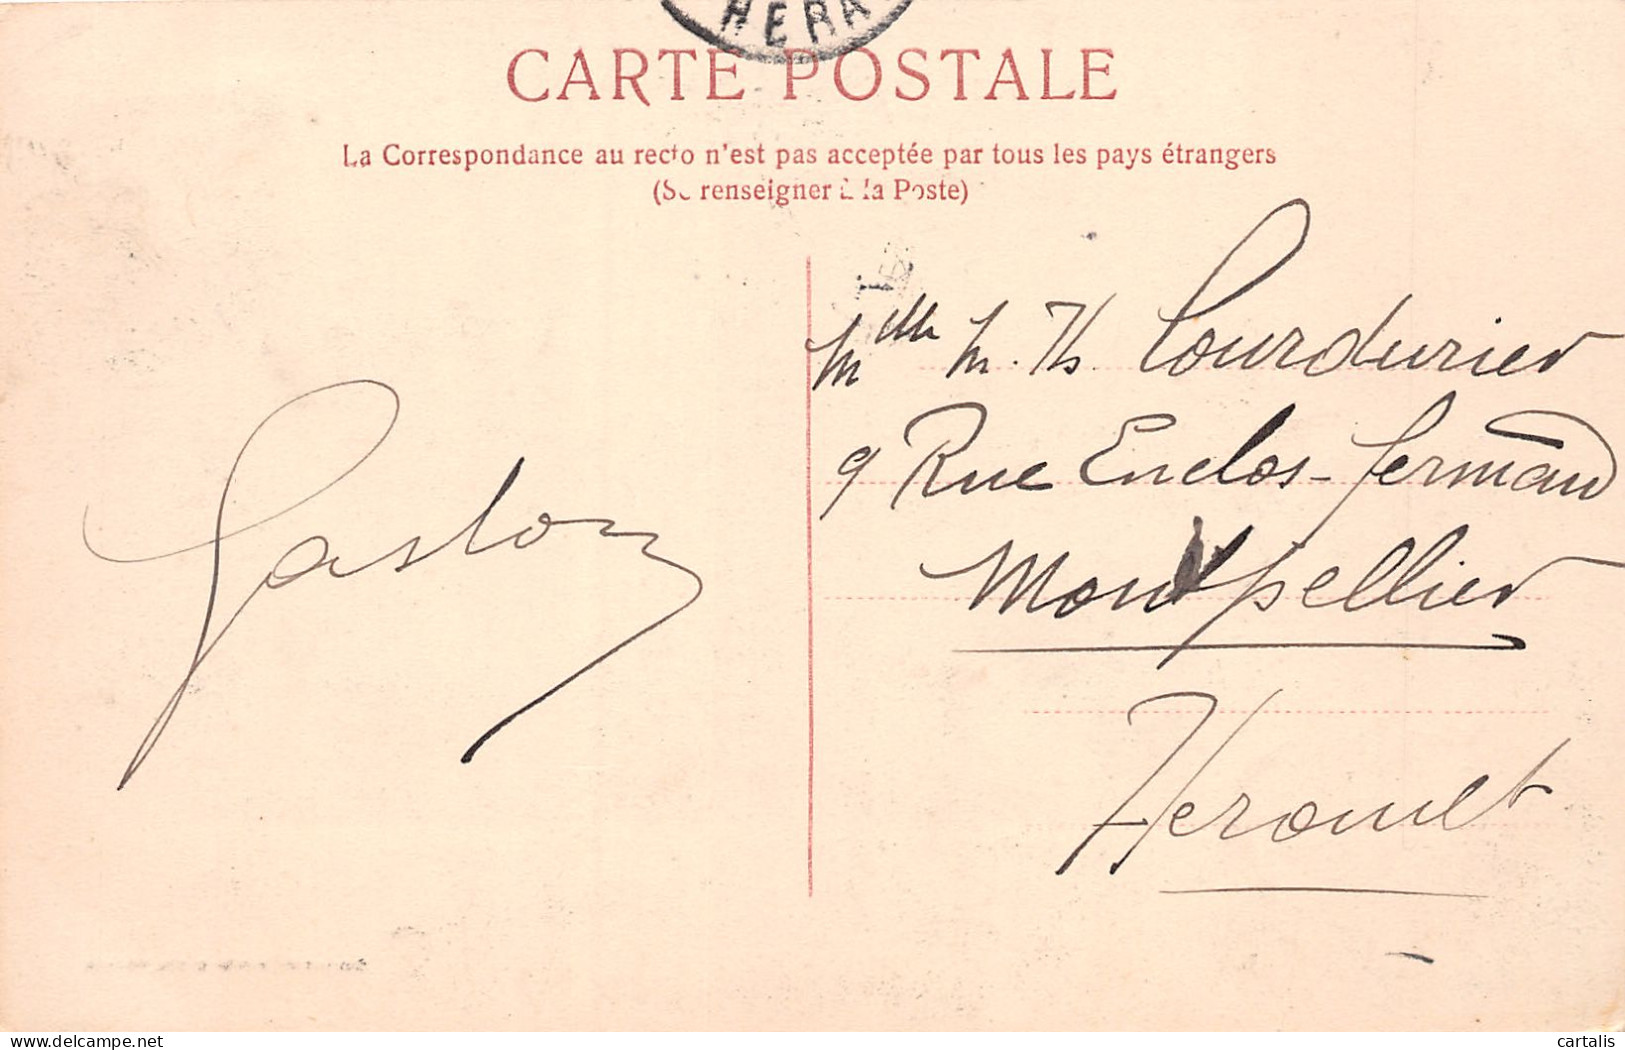 HERA
CARTE POSTALE
La Correspondance au recto n'est pas acceptée par tous les pays étrangers
(Se renseigner à la Poste)
Mlle M. Th. Courdurier
9 Rue Enclos-Fermaud
Montpellier
Herault
Gaston
delcampe.net
cartalis